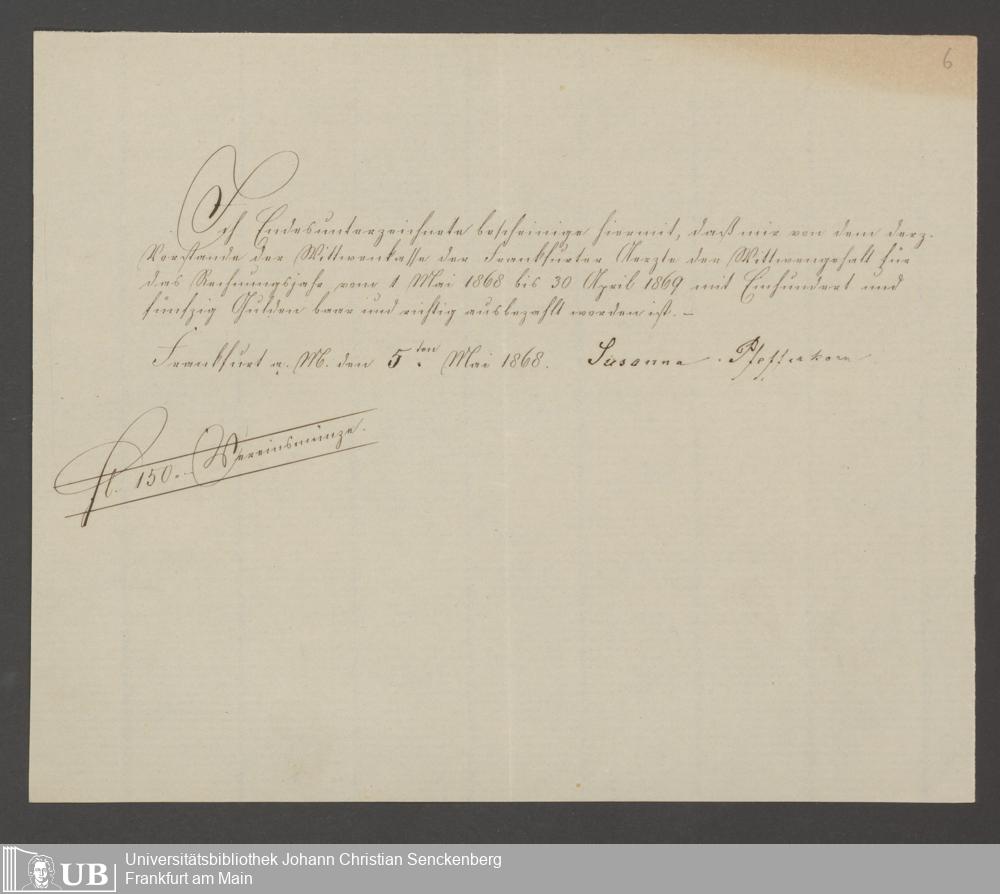 6
Ich Endesunterzeichnete bescheinige hiermit, daß mir von dem derz.
Vorstande der Wittwenkasse der Frankfurter Aerzte der Wittwengehalt für
das Rechnungsjahr vom 1 Mai 1868 bis 30 April 1869 mit Einhundert und
fünfzig Gulden baar und richtig ausbezahlt worden ist. –
Frankfurt a. M. den 5ten Mai 1868. Susanna Pfefferkorn
fl. 150. – Vereinsmünze.
UB Universitätsbibliothek Johann Christian Senckenberg
Frankfurt am Main